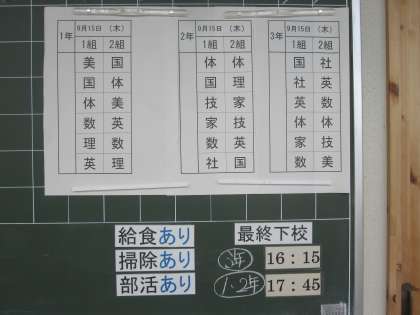 1年 9月15日 (木)
1組 2組
美 国
国 体
体 美
数 英
理 数
英 理
2年 9月15日 (木)
1組 2組
体 体
国 理
技 家
家 技
数 英
社 国
3年 9月15日 (木)
1組 2組
国 社
社 英
英 数
体 体
家 技
数 美
給食あり
掃除あり
部活あり
最終下校
3年 16:15
1・2年 17:45